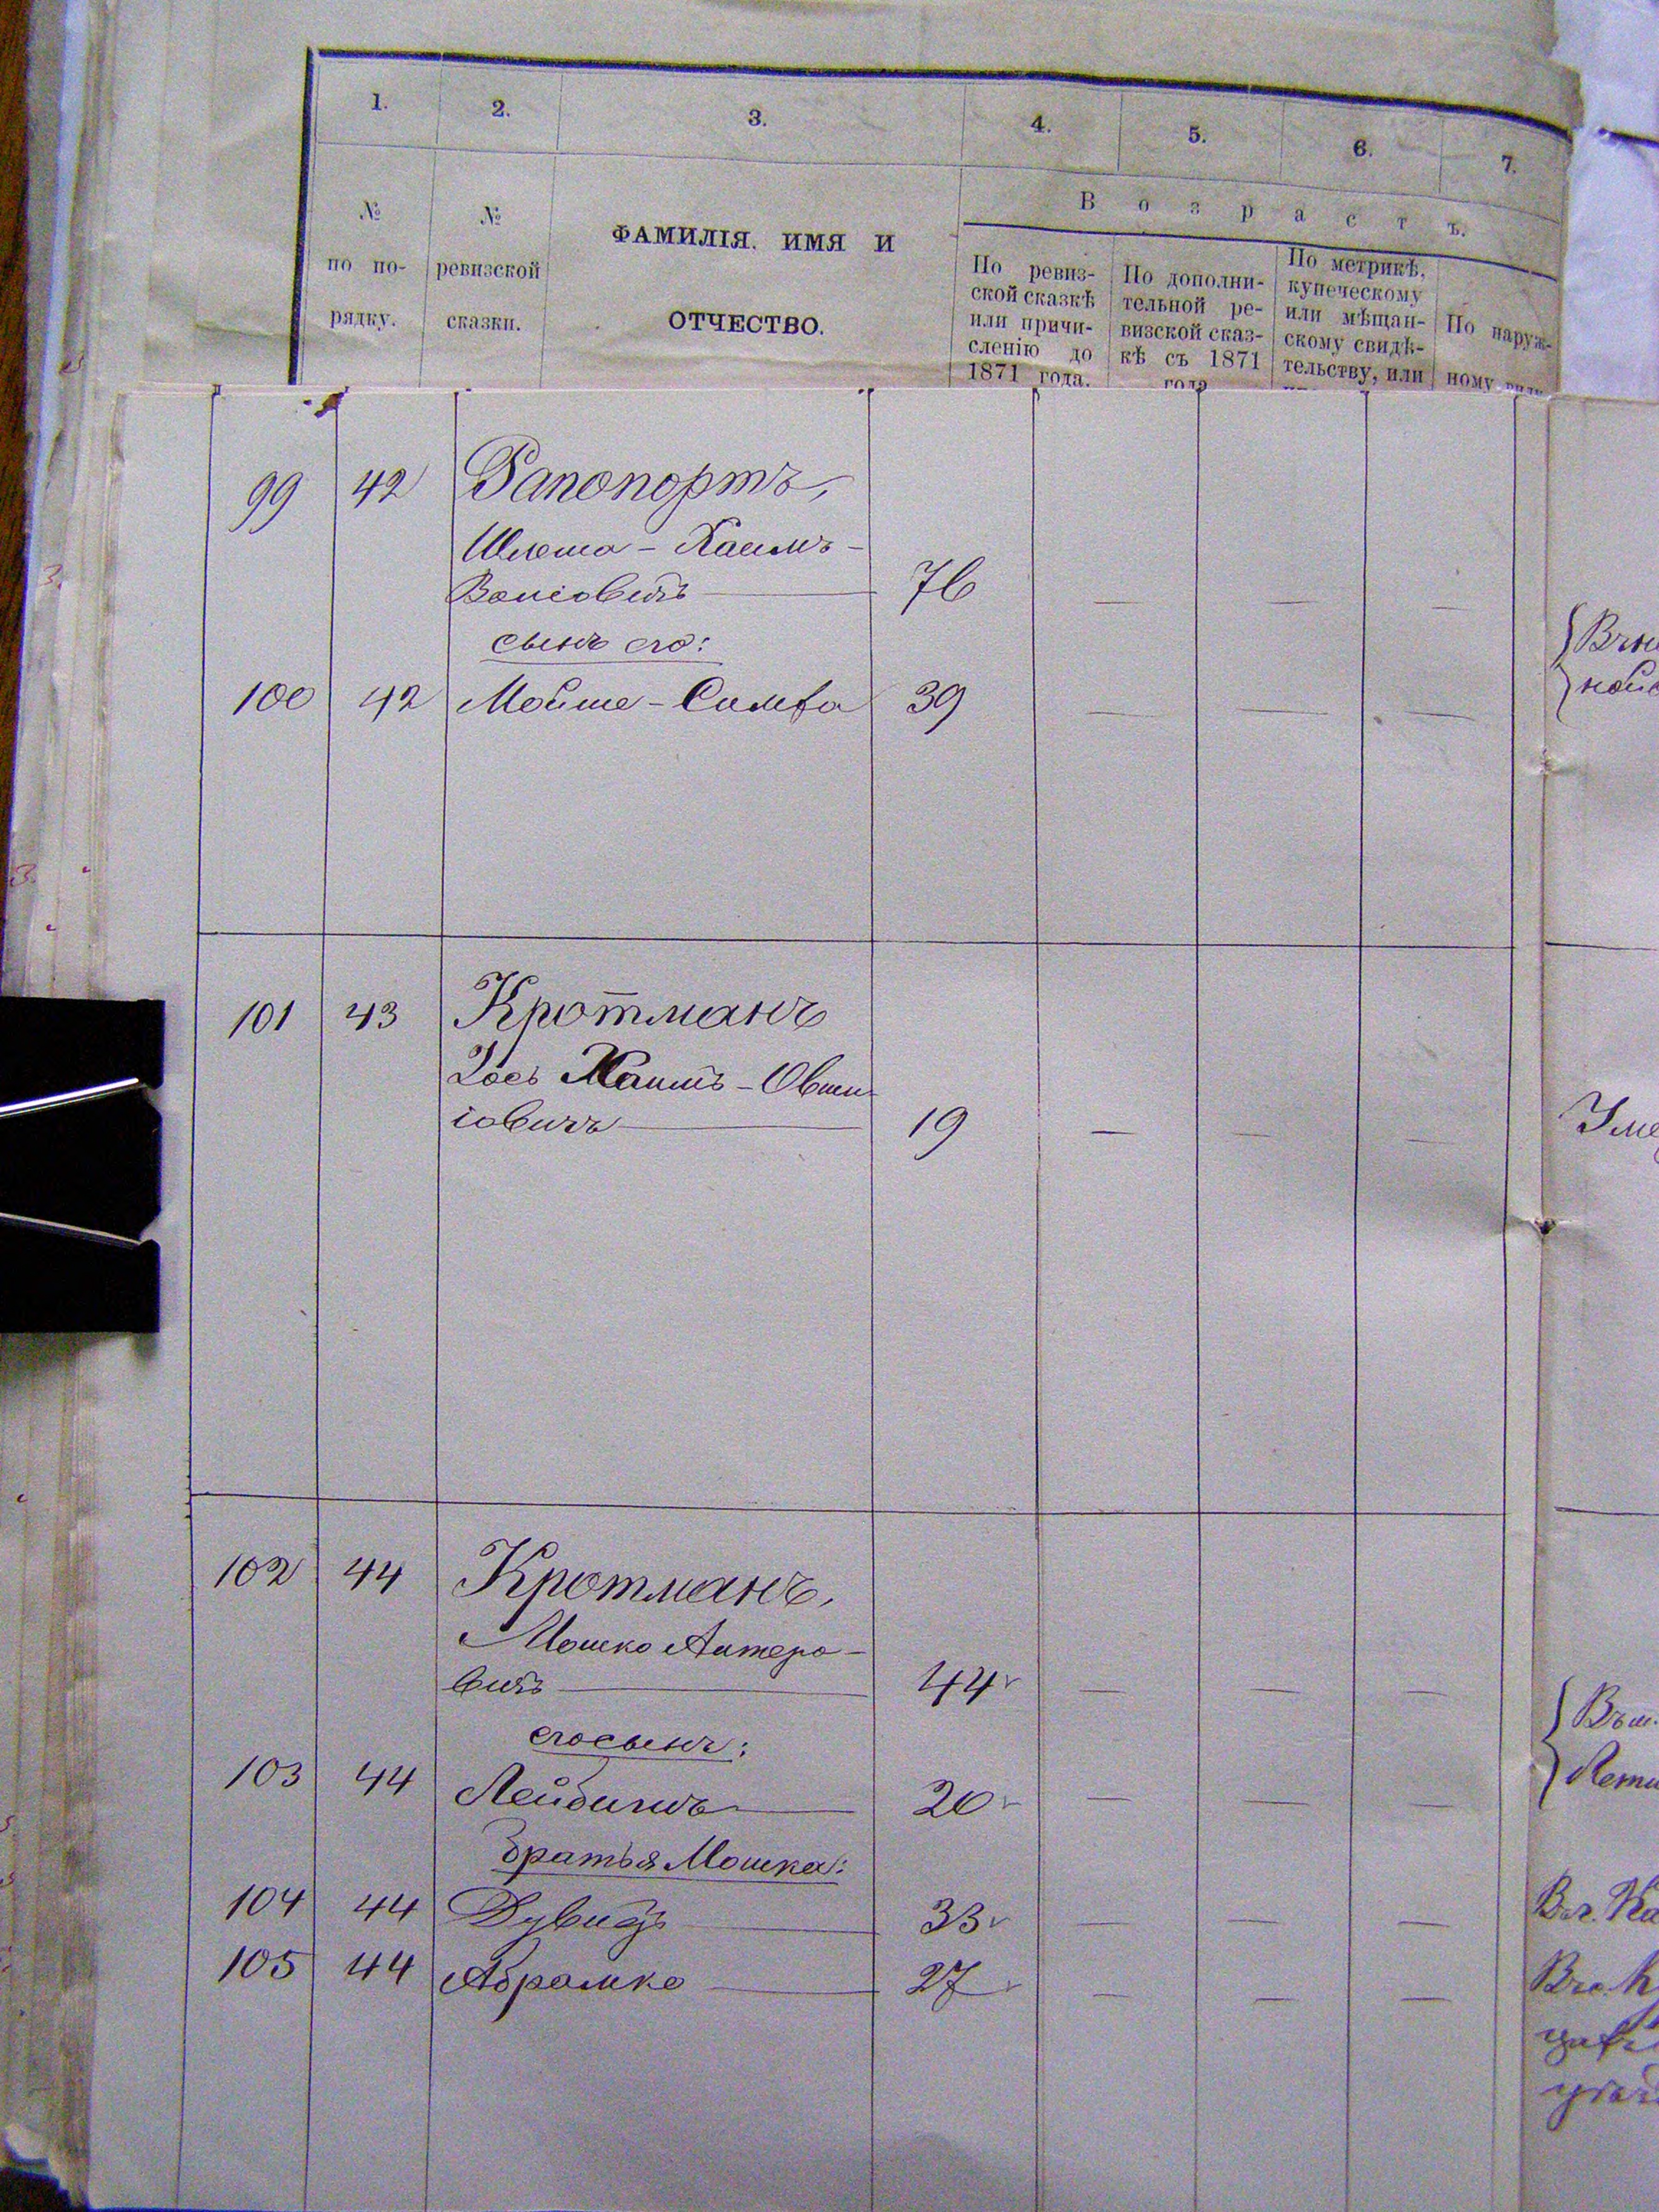 1. 2. 3. 4. 5. 6. 7.
В о з р а с т ъ.
№ по по- рядку.
№ ревизской сказки.
ФАМИЛІЯ, ИМЯ И
ОТЧЕСТВО.
По ревиз-
ской сказкѣ
или причи-
сленію до
1871 года.
По дополни-
тельной ре-
визской сказ-
кѣ съ 1871
года
По метрикѣ,
купеческому
или мѣщан-
скому свидѣ-
тельству, или
По наруж-
ному виду
99 42 Рапопортъ,
Шлема - Хаимъ -
76 — — —
сынъ его:
100 42 Мойше - Симха 39 — — —
101 43 Кротманъ
Хаимъ - Овши-
іовичъ 19 — — —
102 44 Кротманъ,
Мошко Алтеро-
вичъ 44 — — —
его сынъ:
103 44 Лейбишъ 20 — — —
братья Мошка:
104 44 Дувидъ 33 — — —
105 44 Абрамко 27 — — —